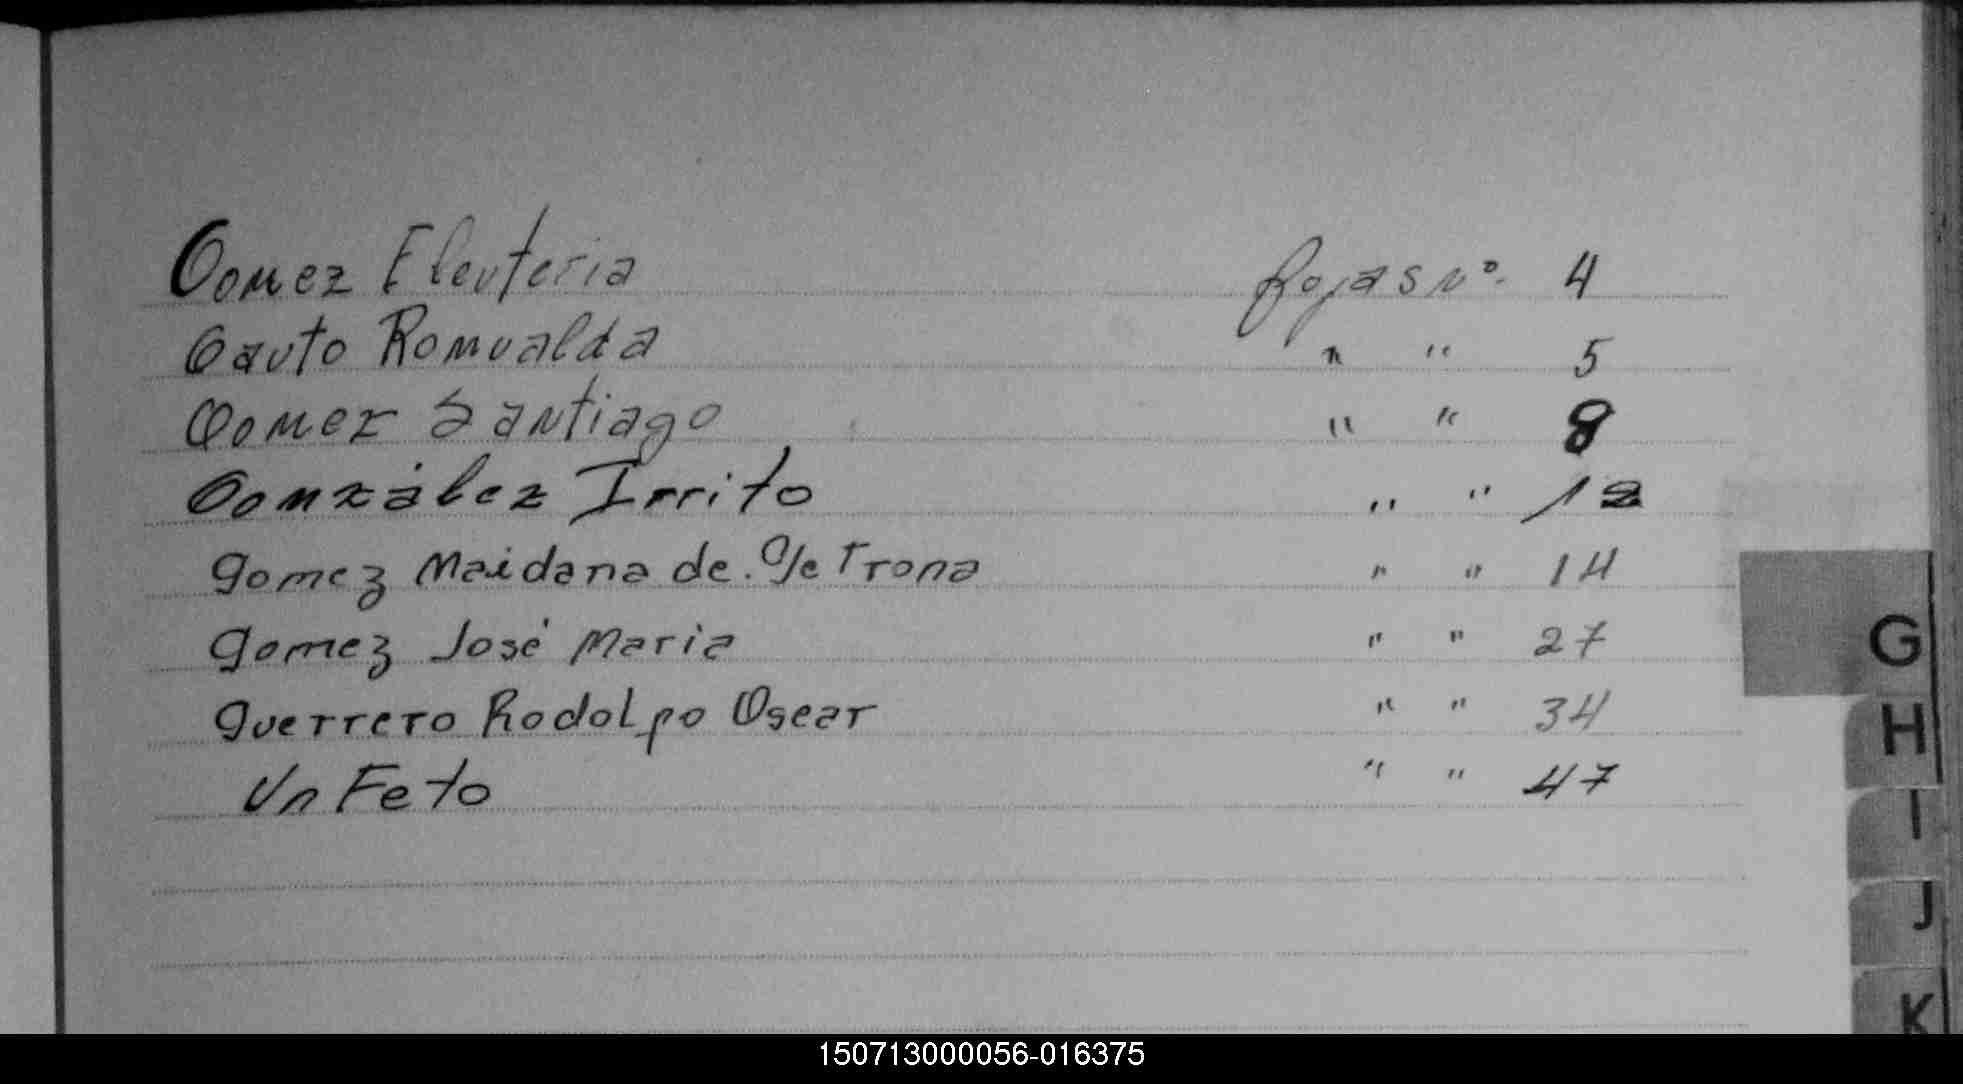 Gomez Eleuteria Fojas Nº. 4
Gauto Romualda " " 5
Gomez Santiago " " 8
González Irrito " " 12
Gomez Maidana de. Petrona " " 14
Gomez José Maria " " 27
Guerrero Rodolfo Oscar " " 34
Un Feto " " 47
G
H
I
J
K
150713000056-016375